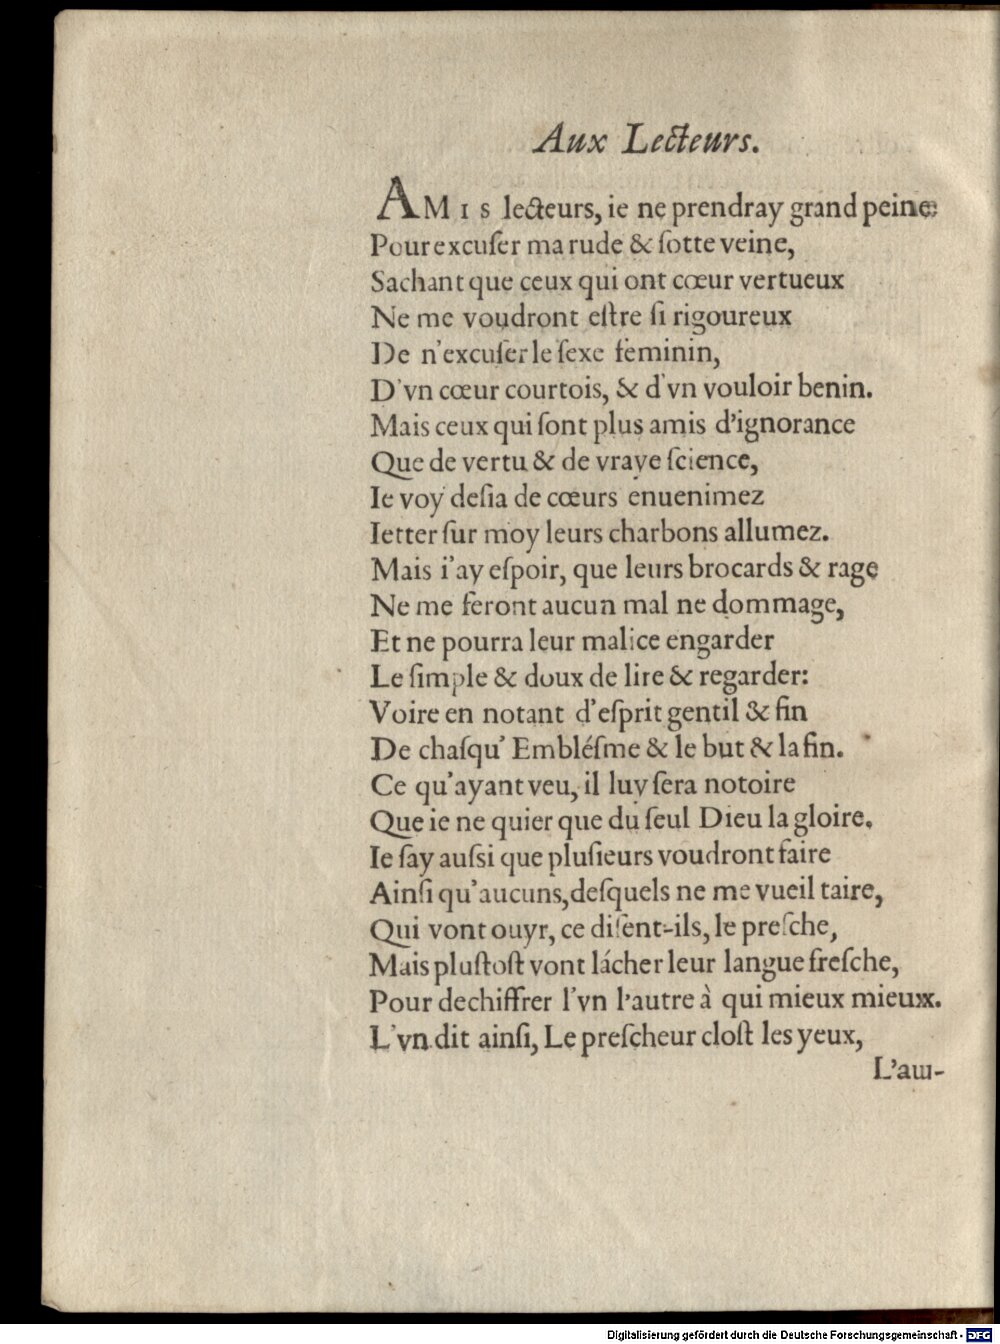 Aux Lecteurs.
AMIS lecteurs, ie ne prendray grand peine
Pour excuſer ma rude & ſotte veine,
Sachant que ceux qui ont cœur vertueux
Ne me voudront eſtre ſi rigoureux
De n'excuſer le ſexe feminin,
D'vn cœur courtois, & d'vn vouloir benin.
Mais ceux qui ſont plus amis d'ignorance
Que de vertu & de vraye ſcience,
Ie voy deſia de cœurs enuenimez
Ietter ſur moy leurs charbons allumez.
Mais i'ay eſpoir, que leurs brocards & rage
Ne me feront aucun mal ne dommage,
Et ne pourra leur malice engarder
Le ſimple & doux de lire & regarder:
Voire en notant d'eſprit gentil & fin
De chaſqu' Embléſme & le but & la fin.
Ce qu'ayant veu, il luy ſera notoire
Que ie ne quier que du ſeul Dieu la gloire.
Ie ſay auſsi que pluſieurs voudront faire
Ainſi qu'aucuns, deſquels ne me vueil taire,
Qui vont ouyr, ce diſent-ils, le preſche,
Mais pluſtoſt vont lácher leur langue freſche,
Pour dechiffrer l'vn l'autre à qui mieux mieux.
L'vn dit ainſi, Le preſcheur cloſt les yeux,
L'au-
Digitalisierung gefördert durch die Deutsche Forschungsgemeinschaft - DFG